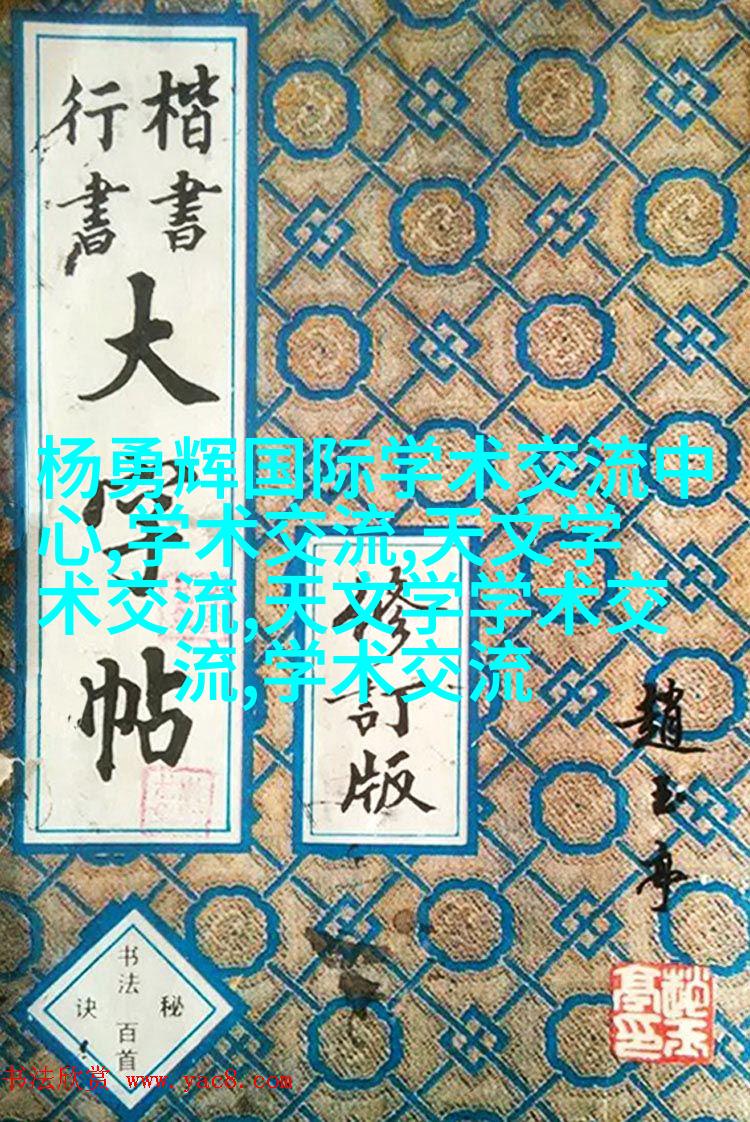 楷書
行書
大字帖
修訂版
趙玉亭
书法
百首
秘
诀
杨勇辉国际学术交流中
心,学术交流,天文学
术交流,天文学学术交
流,学术交流
书法欣赏 www.yac8.com